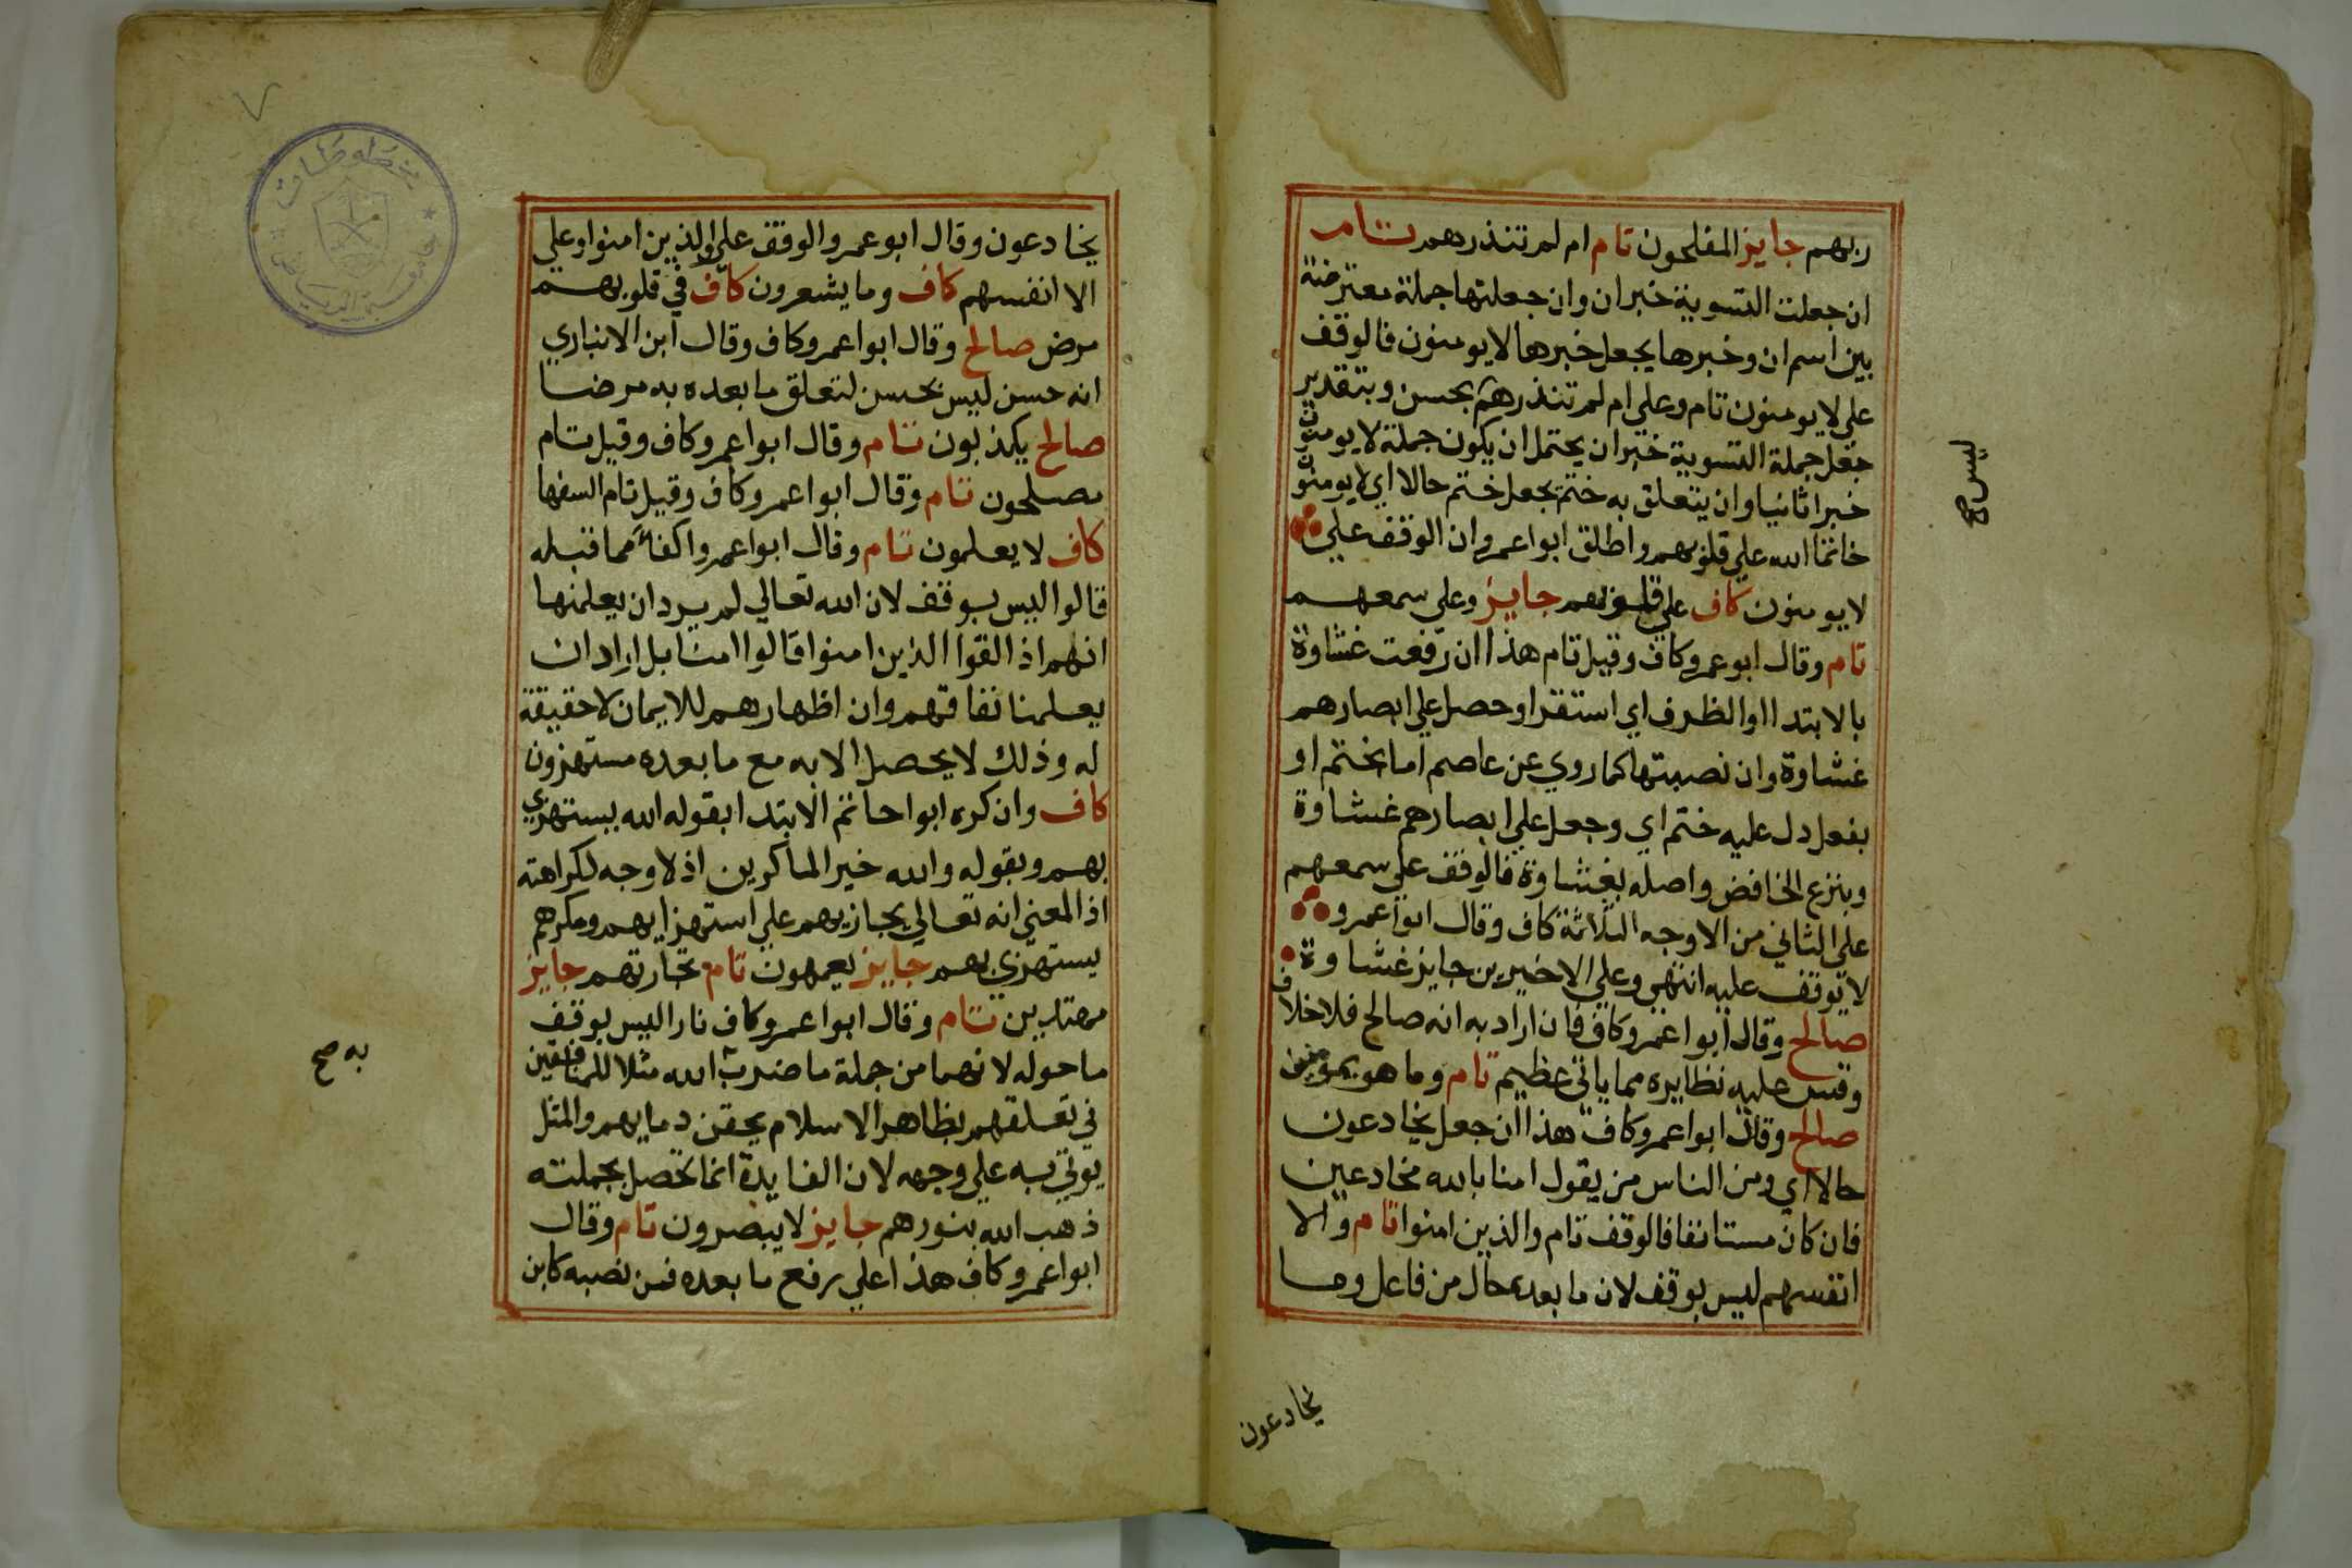 ربهم جايز المفلحون تام ام لم تنذرهم تام
ان جعلت التسوية خبر ان وان جعلتها جملة معترضة
بين اسم ان وخبرها يجعل خبرها لا يومنون فالوقف
علي لا يومنون تام وعلي ام لم تنذرهم بحسن وبتقدير
جعل جملة التسوية خبر ان يحتمل ان يكون جملة لا يومنون
خبرا ثانيا وان يتعلق به ختم بجعل ختم حالا اي لا يومنون
خاتما الله علي قلوبهم واطلق ابوا عمرو ان الوقف علي
لا يومنون كاف علي قلوبهم جايز وعلي سمعهم
تام وقال ابو عمرو كاف وقيل تام هذا ان رفعت غشاوة
بالابتدا او الظرف اي استقر او حصل علي ابصارهم
غشاوة وان نصبتها كما روي عن عاصم اما بختم او
بفعل دل عليه ختم اي وجعل علي ابصارهم غشاوة
وبنزع الخافض واصله بغشاوة فالوقف علي سمعهم
علي الثاني من الاوجه الثلاثة كاف وقال ابوا عمرو
لا توقف عليه انتهي وعلي الاخيرين جايز غشاوة
صالح وقال ابوا عمرو كاف فان اراد به انه صالح فلا خلاف
وقس عليه نظايره مما ياتي عظيم تام وما هو بمومنين
صالح وقال ابوا عمرو كاف هذا ان جعل يخادعون
حالا اي ومن الناس من يقول امنا بالله مخادعين
فان كان مستانفا فالوقف تام والذين امنوا تام والا
انفسهم ليس بوقف لان ما بعده حال من فاعل وما
ليس صح
يخادعون
يخادعون وقال ابو عمرو الوقف علي والذين امنوا وعلي
الا انفسهم كاف وما يشعرون كاف في قلوبهم
مرض صالح وقال ابوا عمرو كاف وقال ابن الانباري
انه حسن ليس بحسن لتعلق ما بعده به مرضا
صالح يكذبون تام وقال ابوا عمرو كاف وقيل تام
مصلحون تام وقال ابوا عمرو كاف وقيل تام السفها
كاف لا يعلمون تام وقال ابوا عمرو اكفا مما قبله
قالوا ليس بوقف لان الله تعالي لم يرد ان يعلمنها
انهم اذ القوا الذين امنوا قالوا امنا بل اراد ان
يعلمنا نفاقهم وان اظهارهم للايمان لا حقيقة
له وذلك لا يحصل الا به مع ما بعده مستهزون
كاف وان كره ابوا حاتم الابتدا بقوله الله يستهزي
بهم وبقوله والله خير الماكرين اذ لا وجه لكراهته
اذ المعني انه تعالي يجازيهم علي استهزايهم ومكرهم
يستهزي بهم جايز يعمهون تام تجارتهم جايز
مهتدين تام وقال ابوا عمرو كاف نارا ليس بوقف
ما حوله لانهما من جملة ما ضرب الله مثلا للمنافقين
في تعلقهم بظاهر الاسلام بحقن دمايهم والمثل
يوتي به علي وجهه لان الفايدة انما تحصل بجملته
ذهب الله بنورهم جايز لا يبصرون تام وقال
ابوا عمرو كاف هذا علي رفع ما بعده فمن نصبه كابن
به صح
مخطوطات